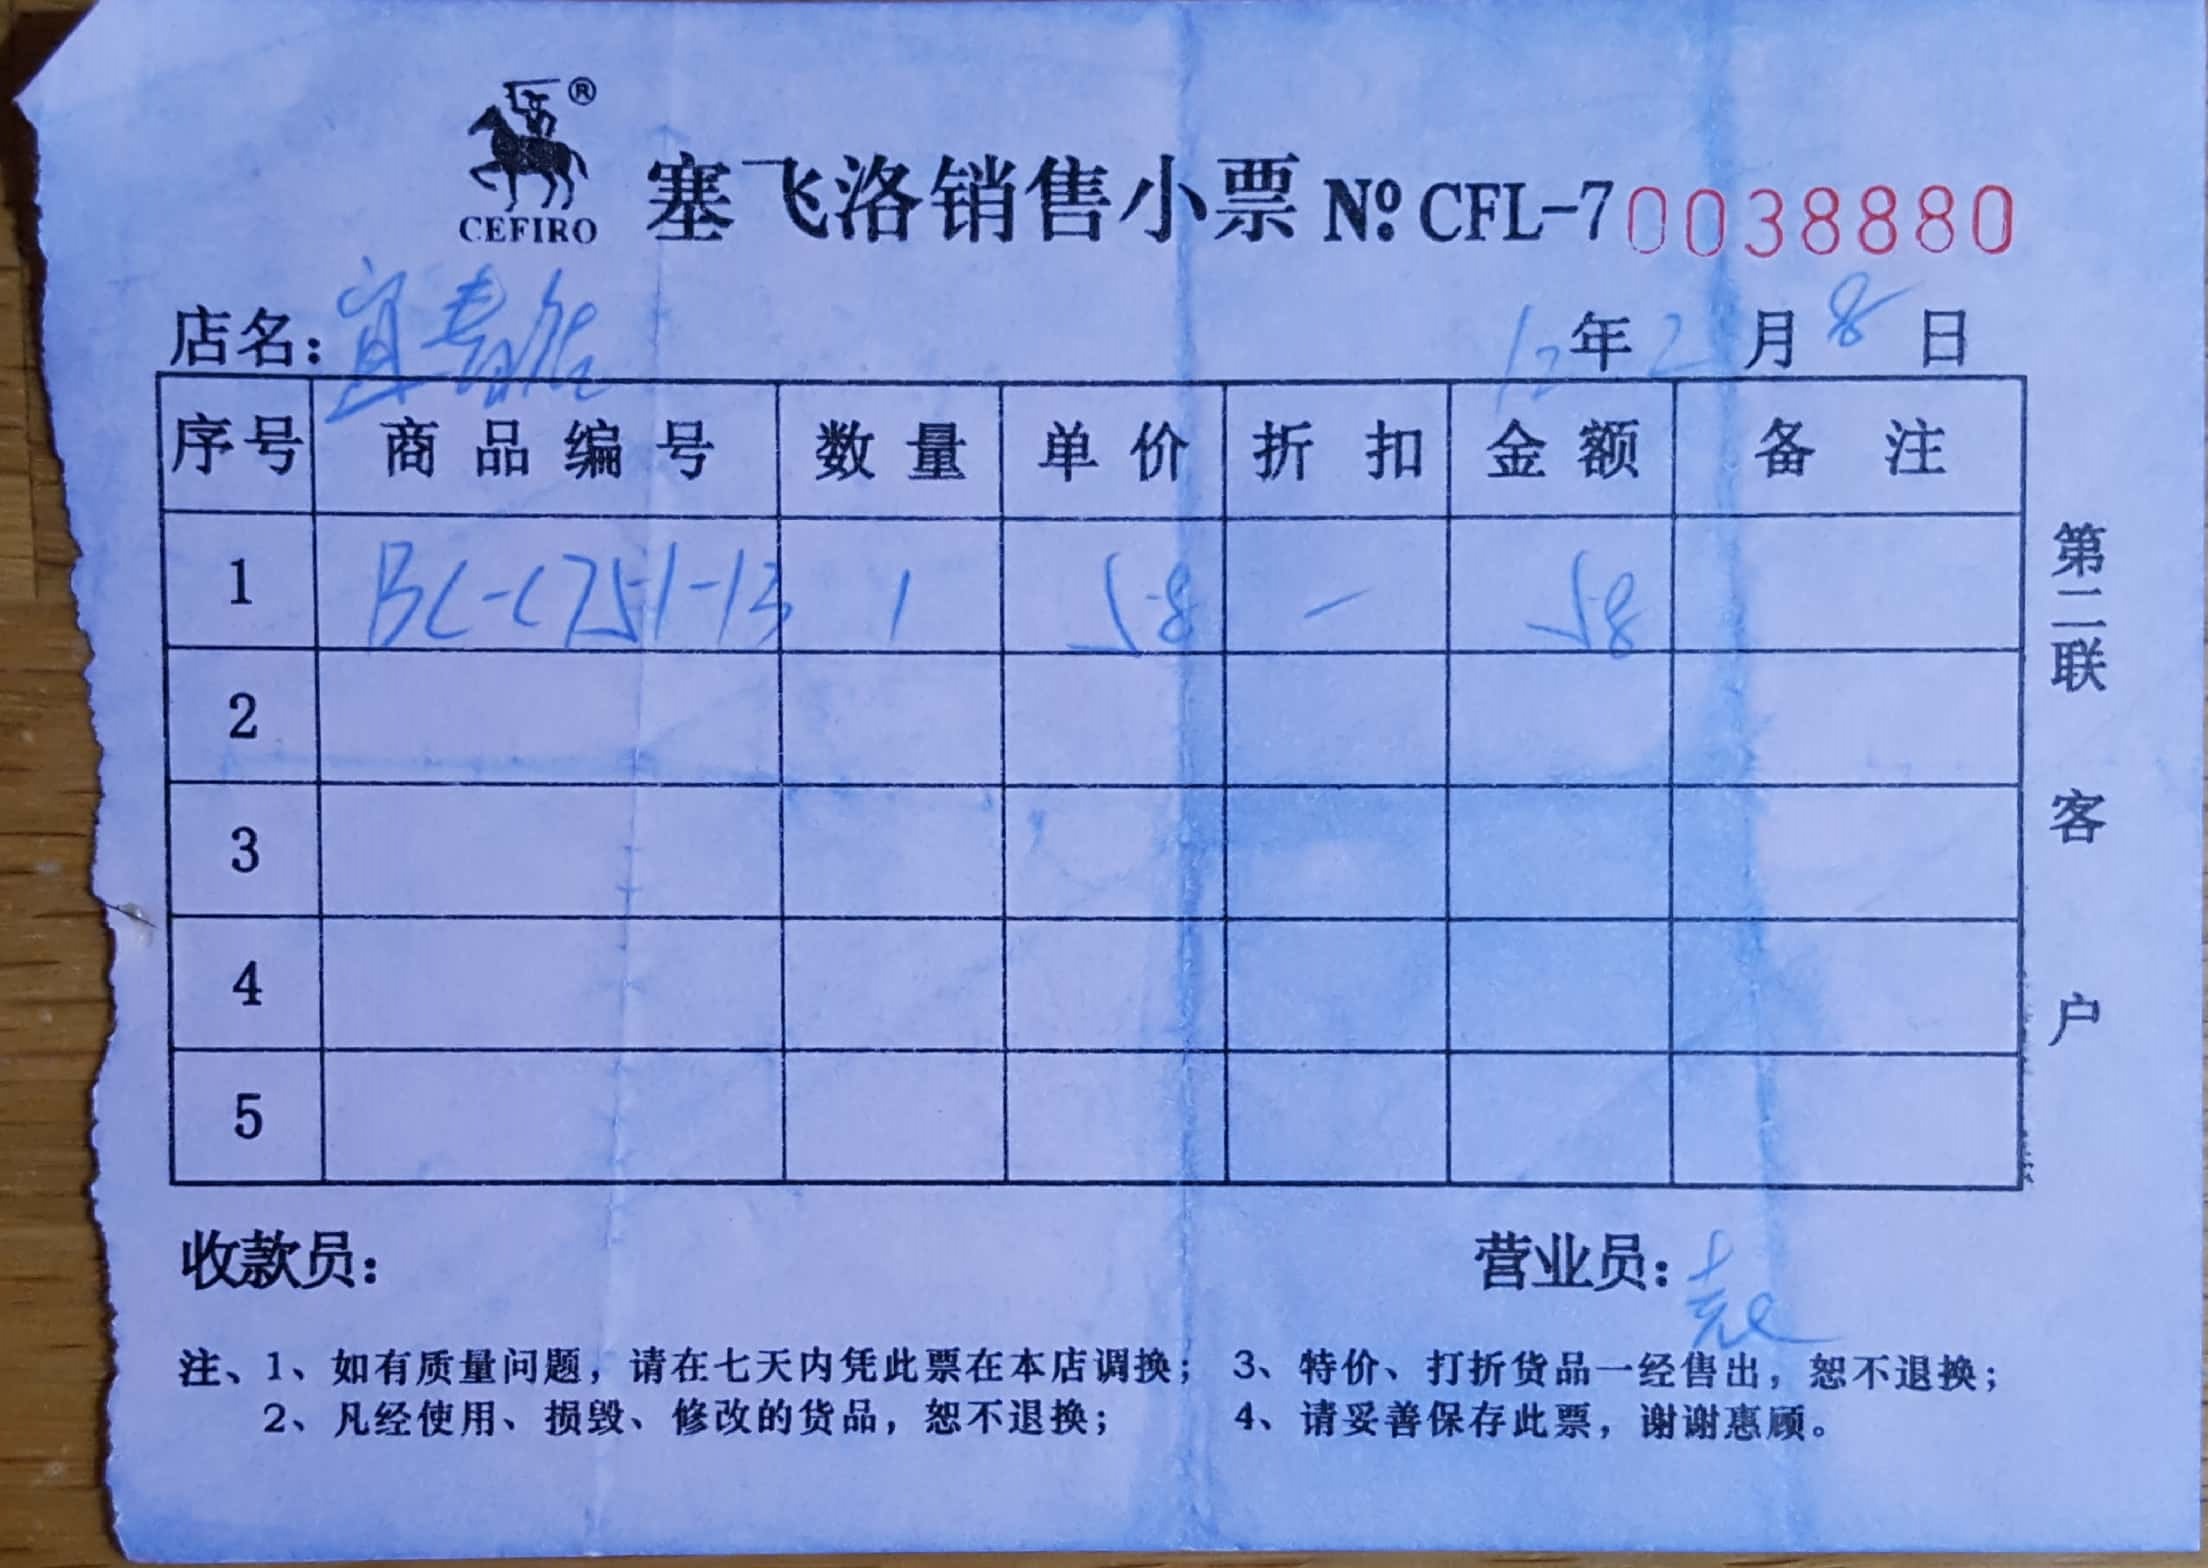 ®
CEFIRO
塞飞洛销售小票 №: CFL-7 0038880
店名: 宜春店 12年2月8日
序号 商品编号 数量 单价 折扣 金额 备注
1 BC-C751-13 1 58 - 58
2
3
4
5
第二联 客户
收款员: 营业员: 袁
注、1、如有质量问题，请在七天内凭此票在本店调换； 3、特价、打折货品一经售出，恕不退换；
2、凡经使用、损毁、修改的货品，恕不退换； 4、请妥善保存此票，谢谢惠顾。